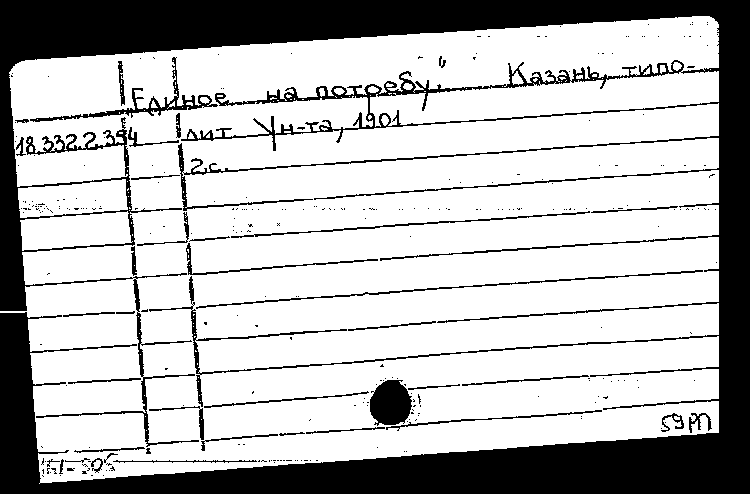 Единое на потребу." Казань, типо-
18.332.2.394 лит. Ун-та, 1901
2 с.
59РП